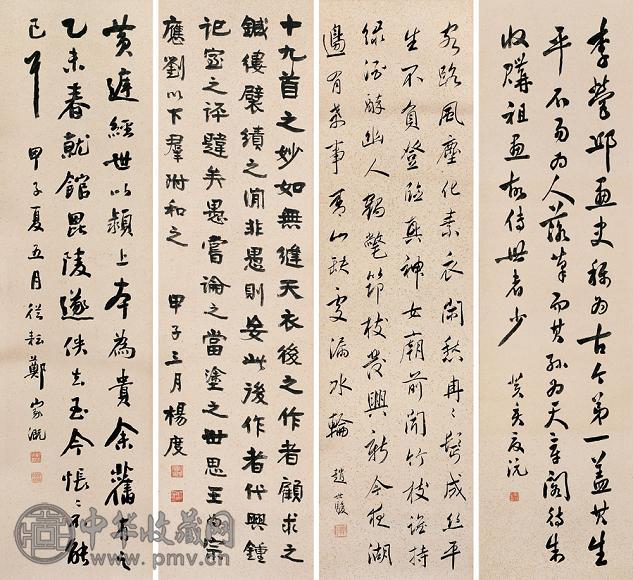 李營邱畫史稱為古今第一蓋其生
平不易為人落筆而其孫為天章閣待制
收購祖畫故傳世者少 癸亥 沅
客路風塵化素衣閑愁冉冉鬢成絲平
生不負登臨神女廟前聞竹枝誰持
綠酒醉幽人鶴氅筇枝發興新今夜湖
邊有奇事青山缺處漏冰輪 趙世駿
十九首之妙如無縫天衣後之作者顧求之
鍼縷襞績之間非愚則妄此後作者代興鍾
記室之評韙矣愚嘗論之當塗之世思王為宗
應劉以下羣附和之 甲子三月楊度
黃庭經世以潁上本為貴余舊有之
乙未春就館毘陵遂佚去至今悵悵不能
已耳 甲子夏五月從耘鄭家溉
中华收藏网
www.pmv.cn